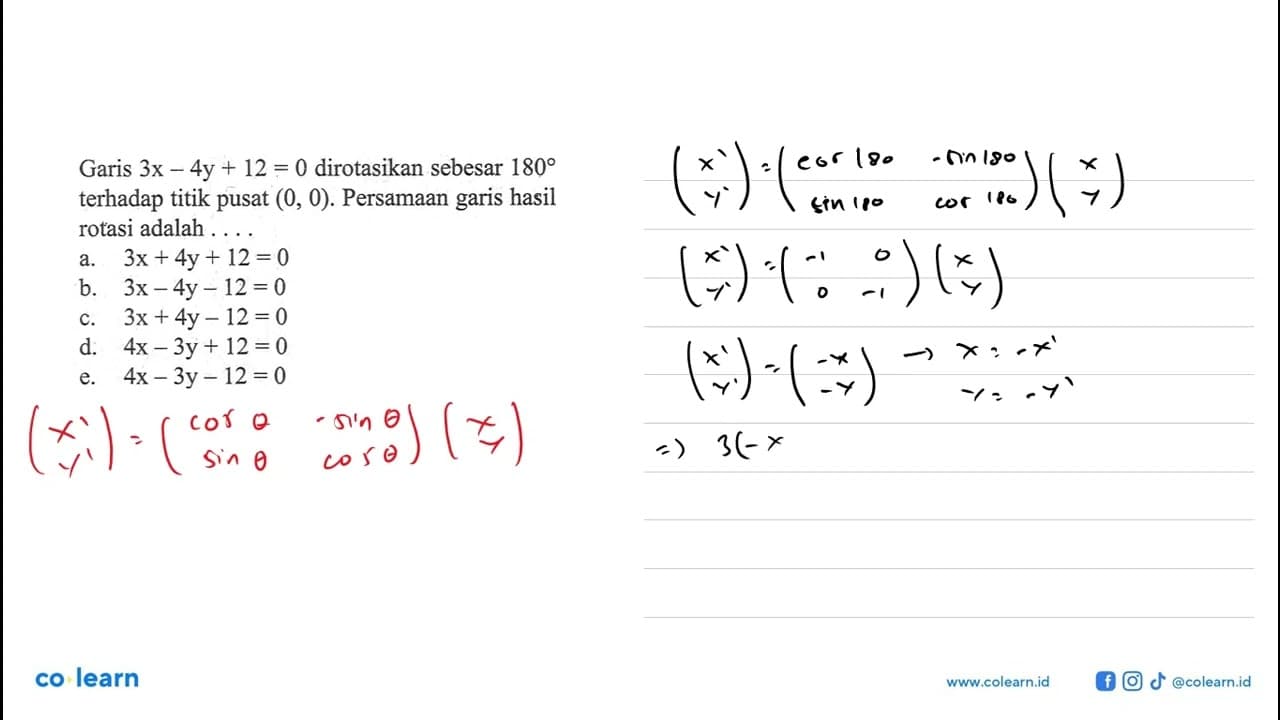 Garis 3x – 4y + 12 = 0 dirotasikan sebesar 180°
terhadap titik pusat (0, 0). Persamaan garis hasil
rotasi adalah . . . .
a. 3x + 4y + 12 = 0
b. 3x – 4y – 12 = 0
c. 3x + 4y – 12 = 0
d. 4x – 3y + 12 = 0
e. 4x – 3y – 12 = 0
(x') = (cos θ -sin θ) (x)
(y') (sin θ cos θ) (y)
(x') = (cos 180 -sin 180) (x)
(y') (sin 180 cos 180) (y)
(x') = (-1 0) (x)
(y') (0 -1) (y)
(x') = (-x) → x = -x'
(y') (-y) y = -y'
=> 3(-x
co learn
www.colearn.id
@colearn.id